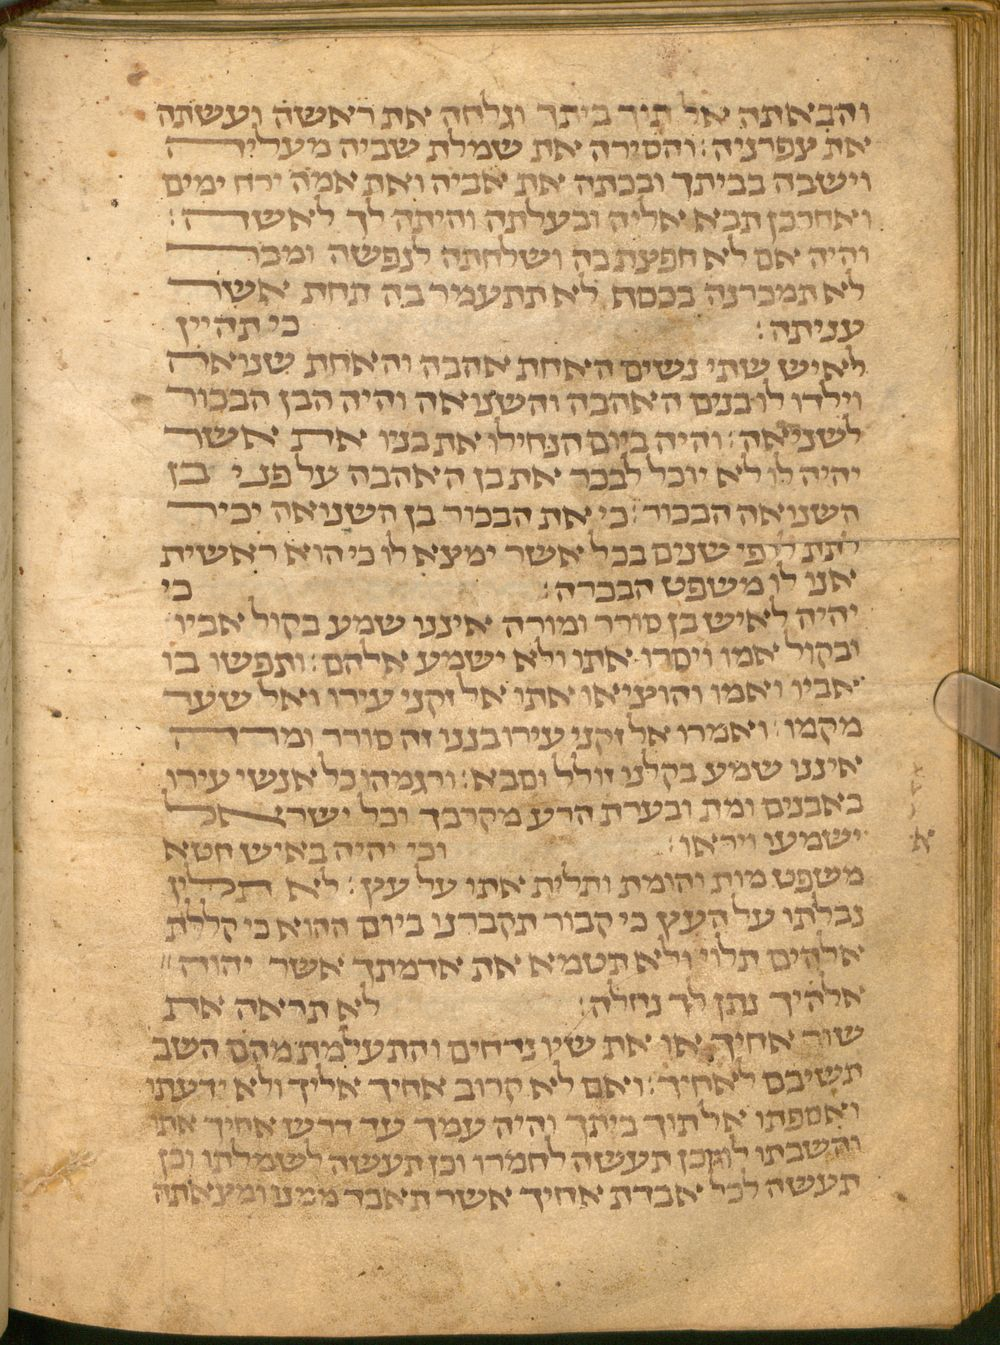 והבאתה אל תוך ביתך וגלחה את ראשה ועשתה
את עפרניה : והסירה את שמלת שביה מעליה
וישבה בביתך ובכתה את אביה ואת אמה ירח ימים
ואחר כן תבא אליה ובעלתה והיתה לך לאשה :
והיה אם לא חפצת בה ושלחתה לנפשה ומכר
לא תמכרנה בכסף לא תתעמיר בה תחת אשר
עניתה : כי תהיין
לאיש שתי נשים האחת אהבה והאחת שנואה
וילדו לו בנים האהבה והשנואה והיה הבן הבכור
לשניאה : והיה ביום הנחילו את בניו את אשר
יהיה לו לא יוכל לבכר את בן האהבה על פני בן
השנואה הבכור : כי את הבכור בן השנואה יכיר
לתת לו פי שנים בכל אשר ימצא לו כי הוא ראשית
אנו לו משפט הבכרה : כי
יהיה לאיש בן סורר ומורה איננו שמע בקול אביו
ובקול אמו ויסרו אתו ולא ישמע אלהם : ותפשו בו
אביו ואמו והוציאו אתו אל זקני עירו ואל שער
מקמו : ואמרו אל זקני עירו בננו זה סורר ומרה
איננו שמע בקלנו זולל וסבא : ורגמהו כל אנשי עירו
באבנים ומת ובערת הרע מקרבך וכל ישראל
ישמעו ויראו : וכי יהיה באיש חטא
משפט מות והומת ותלית אתו על עץ : לא תלין
נבלתו על העץ כי קבור תקברנו ביום ההוא כי קללת
אלהים תלוי ולא תטמא את אדמתך אשר יהוה
אלהיך נתן לך נחלה : לא תראה את
שור אחיך או את שיו נדחים והתעלמת מהם השב
תשיבם לאחיך : ואם לא קרוב אחיך אליך ולא ידעתו
ואספתו אל תוך ביתך והיה עמך עד דרש אחיך אתו
והשבתו לו וכן תעשה לחמרו וכן תעשה לשמלתו וכן
תעשה לכל אבדת אחיך אשר תאבד ממנו ומצאתה